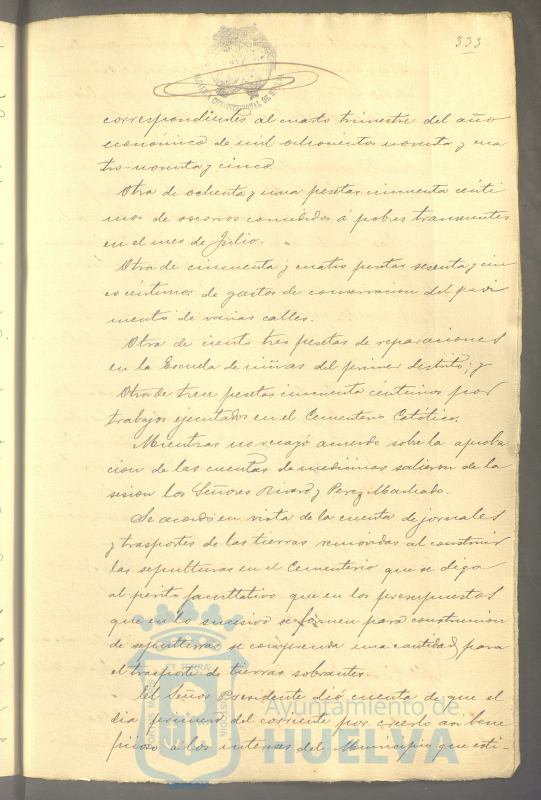 333
correspondientes al cuarto trimestre del año
económico de mil ochocientos noventa y cua
tro-noventa y cinco.
Otra de ochenta y una pesetas cincuenta cénti
mos de socorros concedidos a pobres transeuntes
en el mes de Julio.
Otra de cincuenta y cuatro pesetas sesenta y cin
co céntimos de gastos de conservacion del pavi
mento de varias calles.
Otra de ciento tres pesetas de reparaciones
en la Escuela de niñas del primer distrito; y
Otra de trece pesetas cincuenta céntimos por
trabajos ejecutados en el Cementerio Católico.
Mientras no recayó acuerdo sobre la aproba
cion de las cuentas de medicinas salieron de la
sesion los Señores y Perez Machado.
Se acordó en vista de la cuenta de jornales
y trasportes de las tierras removidas al construir
las sepulturas en el Cementerio que se diga
al perito facultativo que en los presupuestos
que en lo sucesivo se formen para construccion
de sepulturas se comprenda una cantidad para
el trasporte de tierras sobrantes.
El Señor Presidente dió cuenta de que el
dia primero del corriente por creerlo asi bene
ficioso a los intereses del Municipio que esti-
Ayuntamiento de
HUELVA